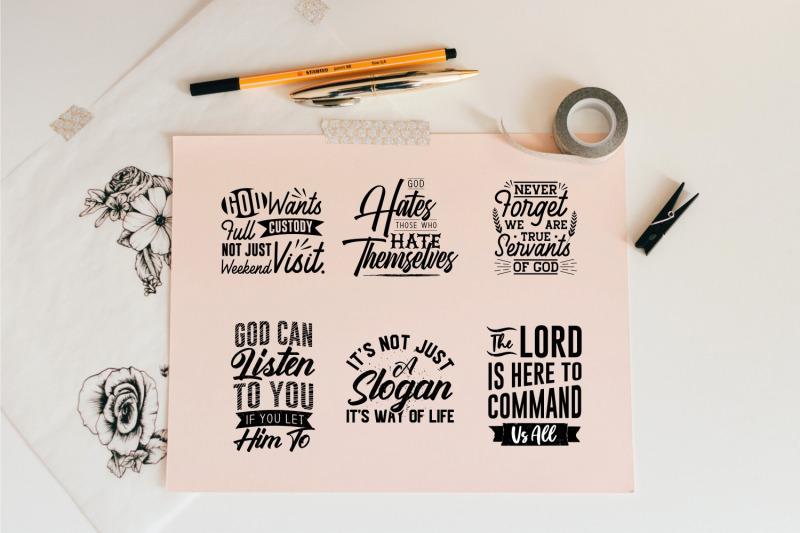 STABILO
GOD Wants
Full CUSTODY
NOT JUST
Weekend Visit.
GOD
Hates
THOSE WHO
HATE
Themselves
NEVER
Forget
WE ARE
TRUE
Servants
OF GOD
GOD CAN
Listen
TO YOU
IF YOU LET
Him To
IT'S NOT JUST
A
Slogan
IT'S WAY OF LIFE
The LORD
IS HERE TO
COMMAND
Us All